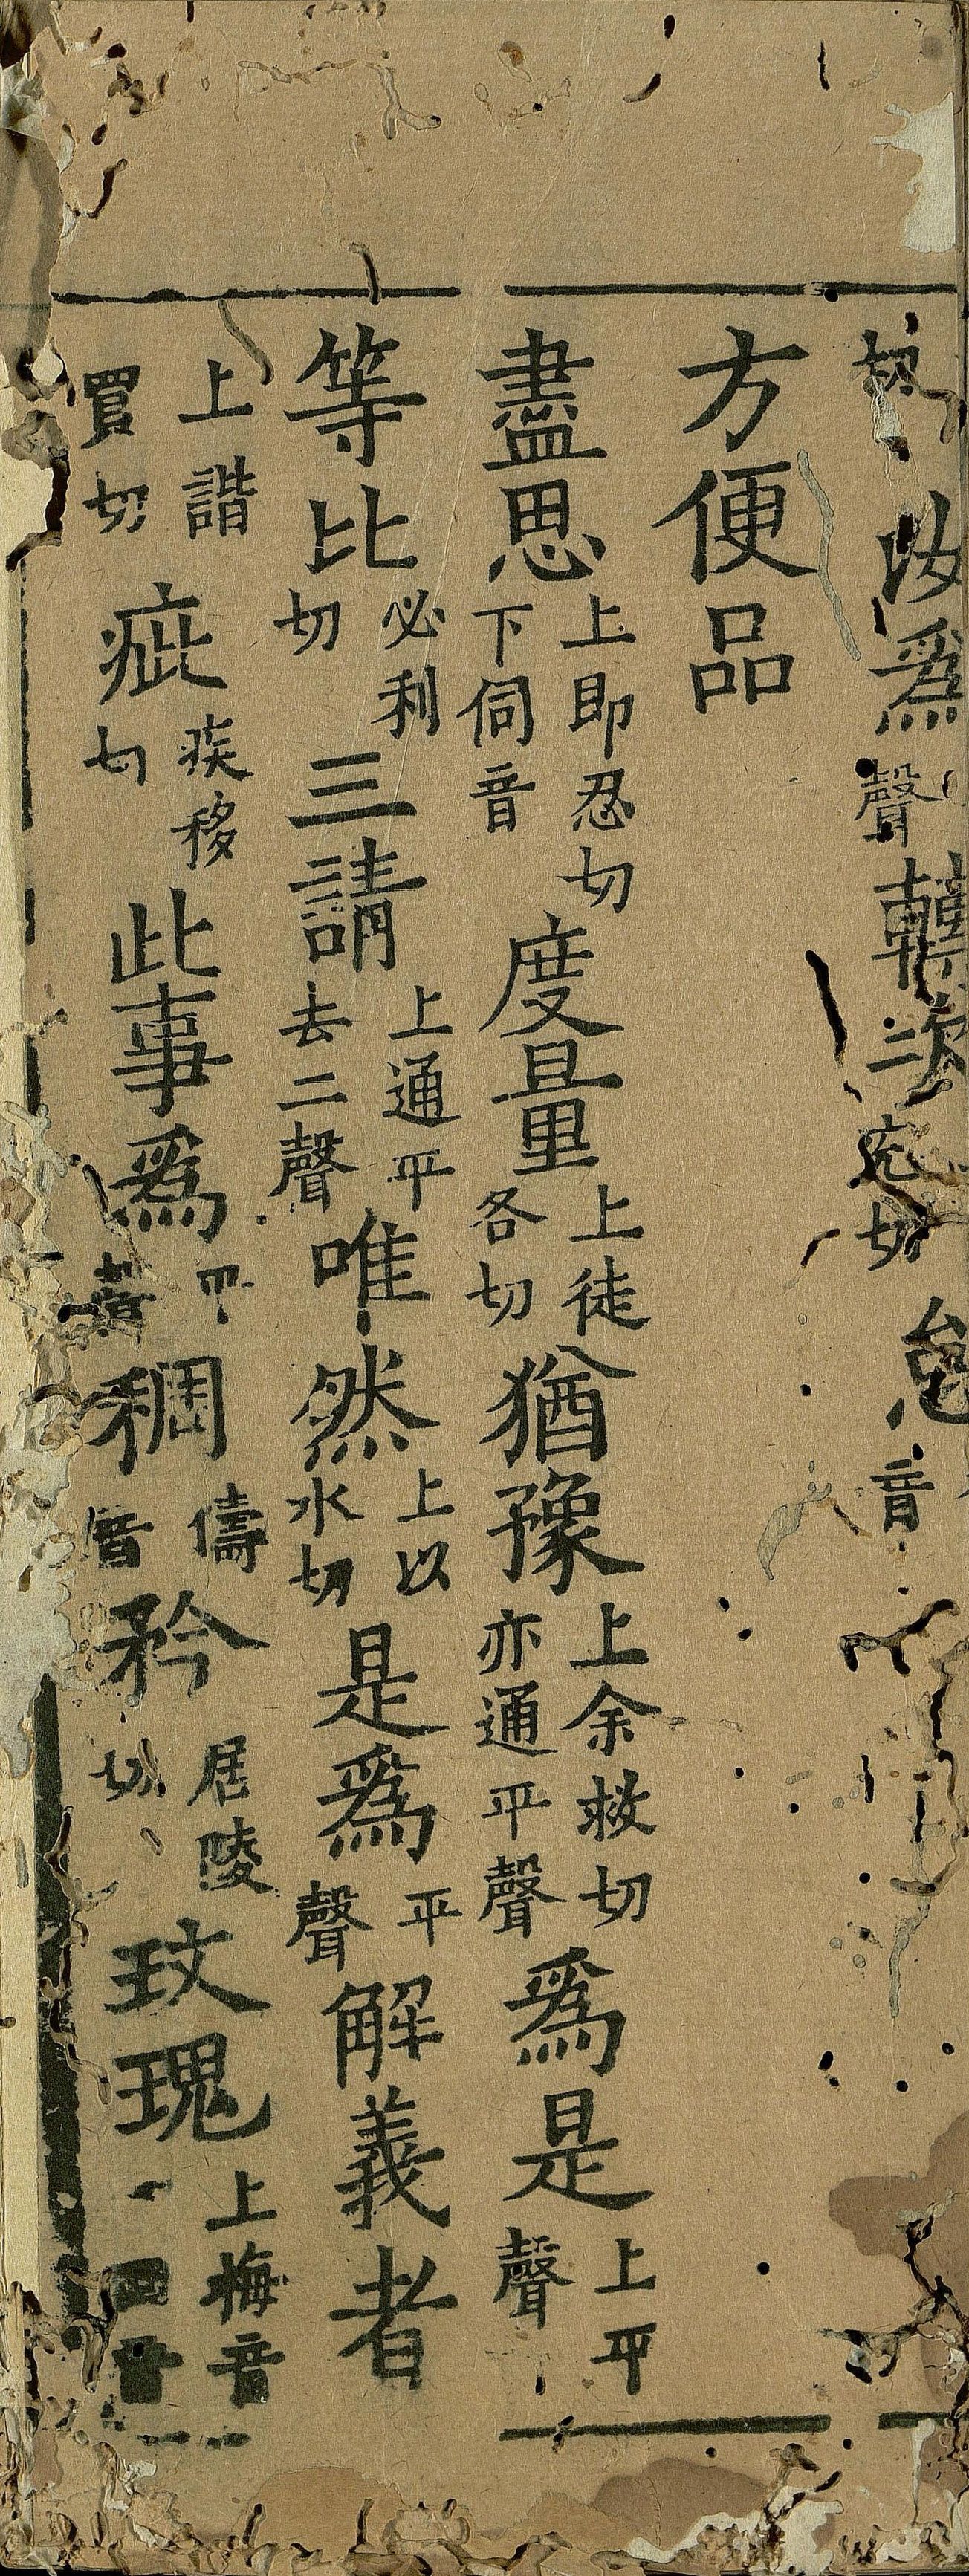 切 汝爲 聲 轉次 兖切 怠 音
方便品
盡思 上即忍切下伺音 度量 上徒各切 猶豫 上余救切亦通平聲 爲是 上平聲
等比 必利切 三請 上通平去二聲 唯然 上以水切 是爲 平聲 解義者
上諧買切 疵 疾移切 此事爲 平 稠 儔音 矜 居陵切 玫瑰 上梅音